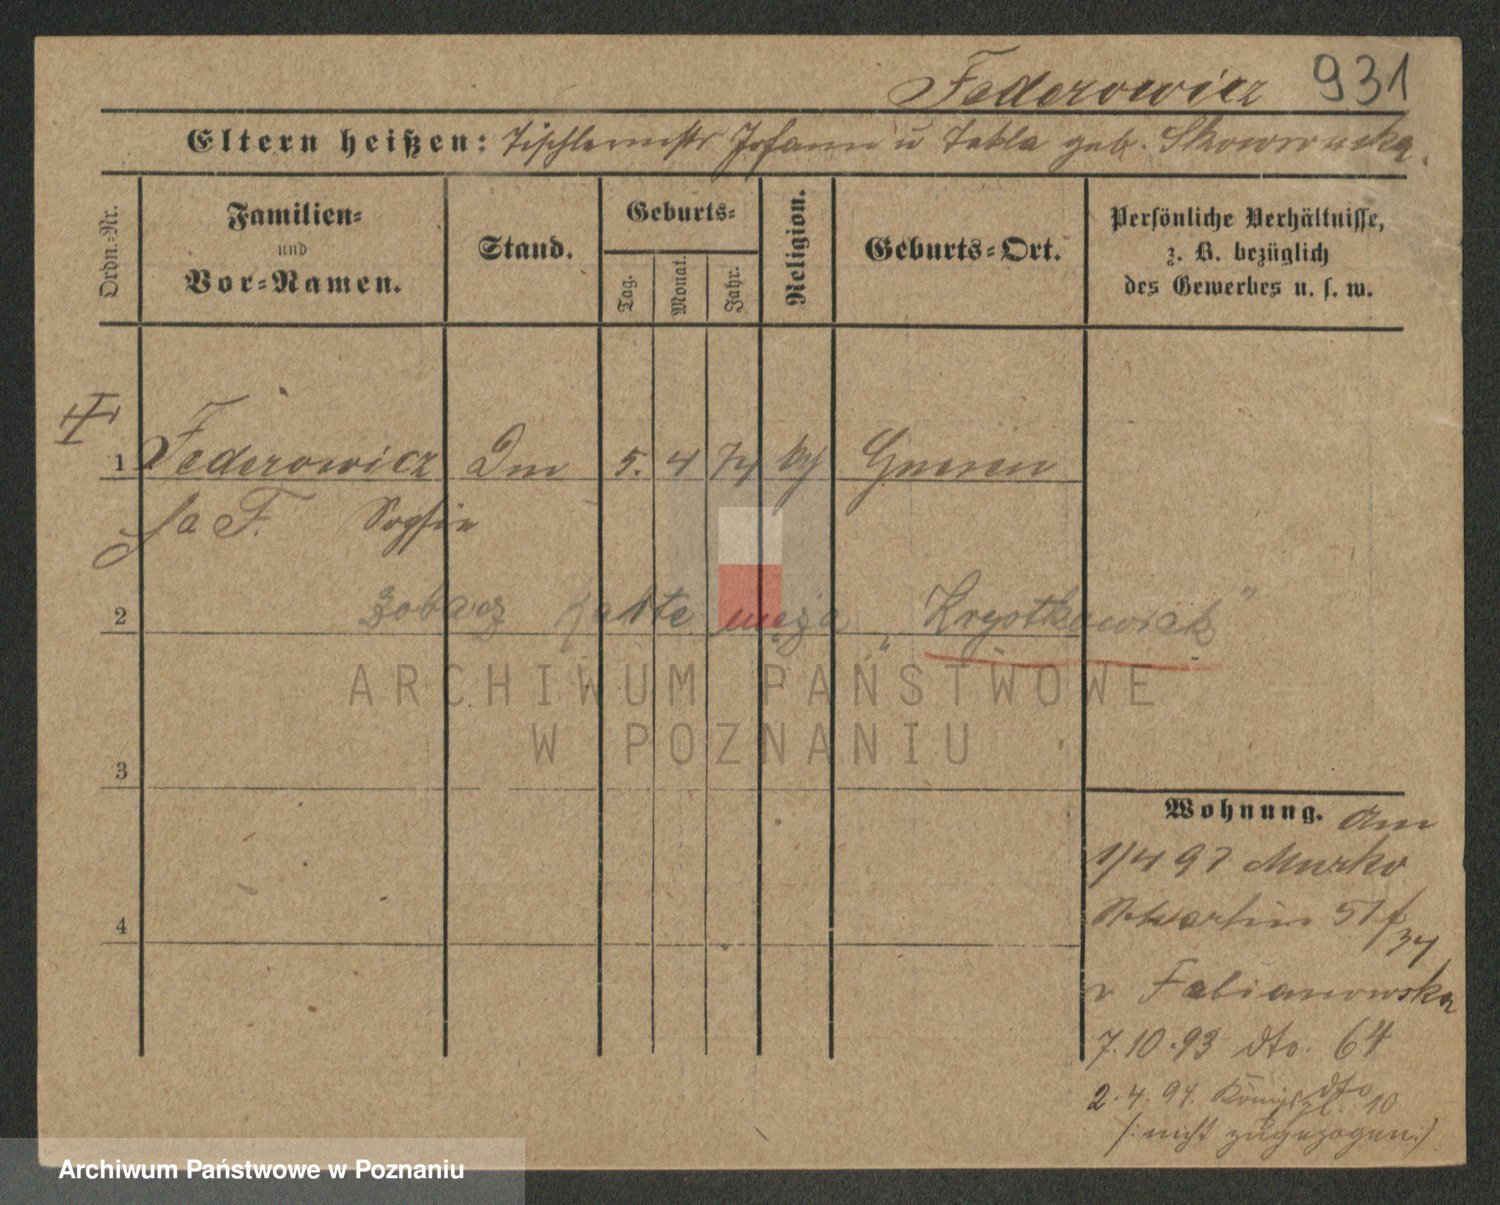 Federowicz 931
Eltern heißen: Tischlermstr Johann u Tekla geb.
Ordn.=Nr.
Familien=
und
Vor=Namen.
Stand.
Geburts=
Tag.
Monat.
Jahr.
Religion.
Geburts=Ort.
Persönliche Verhältnisse,
z. B. bezüglich
des Gewerbes u. s. w.
1 Federowicz 5. 4 74 Gnesen
Sophie
2 Zobacz kartę męża „Krystkowiak"
3
4
Wohnung. Am
1/4 93
Martin 51 f
34
v Fabianowska
7.10.93 dto. 64
dto
2.4.94. Königspl. 10
(: nicht zugezogen :)
ARCHIWUM PAŃSTWOWE
W POZNANIU
Archiwum Państwowe w Poznaniu